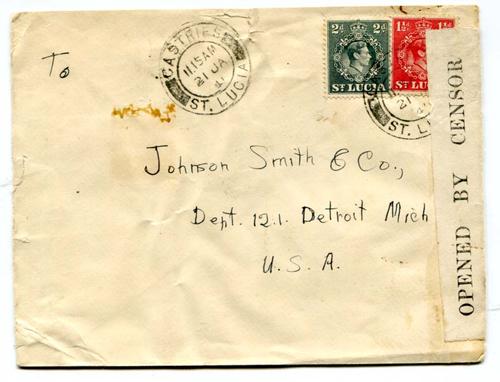 To
CASTRIES
11.15AM
21 JA
ST. LUCIA
2d 2d
ST LUCIA
1½d
ST LUCIA
21
ST. LU
Johnson Smith & Co.,
Dept. 121. Detroit Mich
U.S.A.
OPENED BY CENSOR